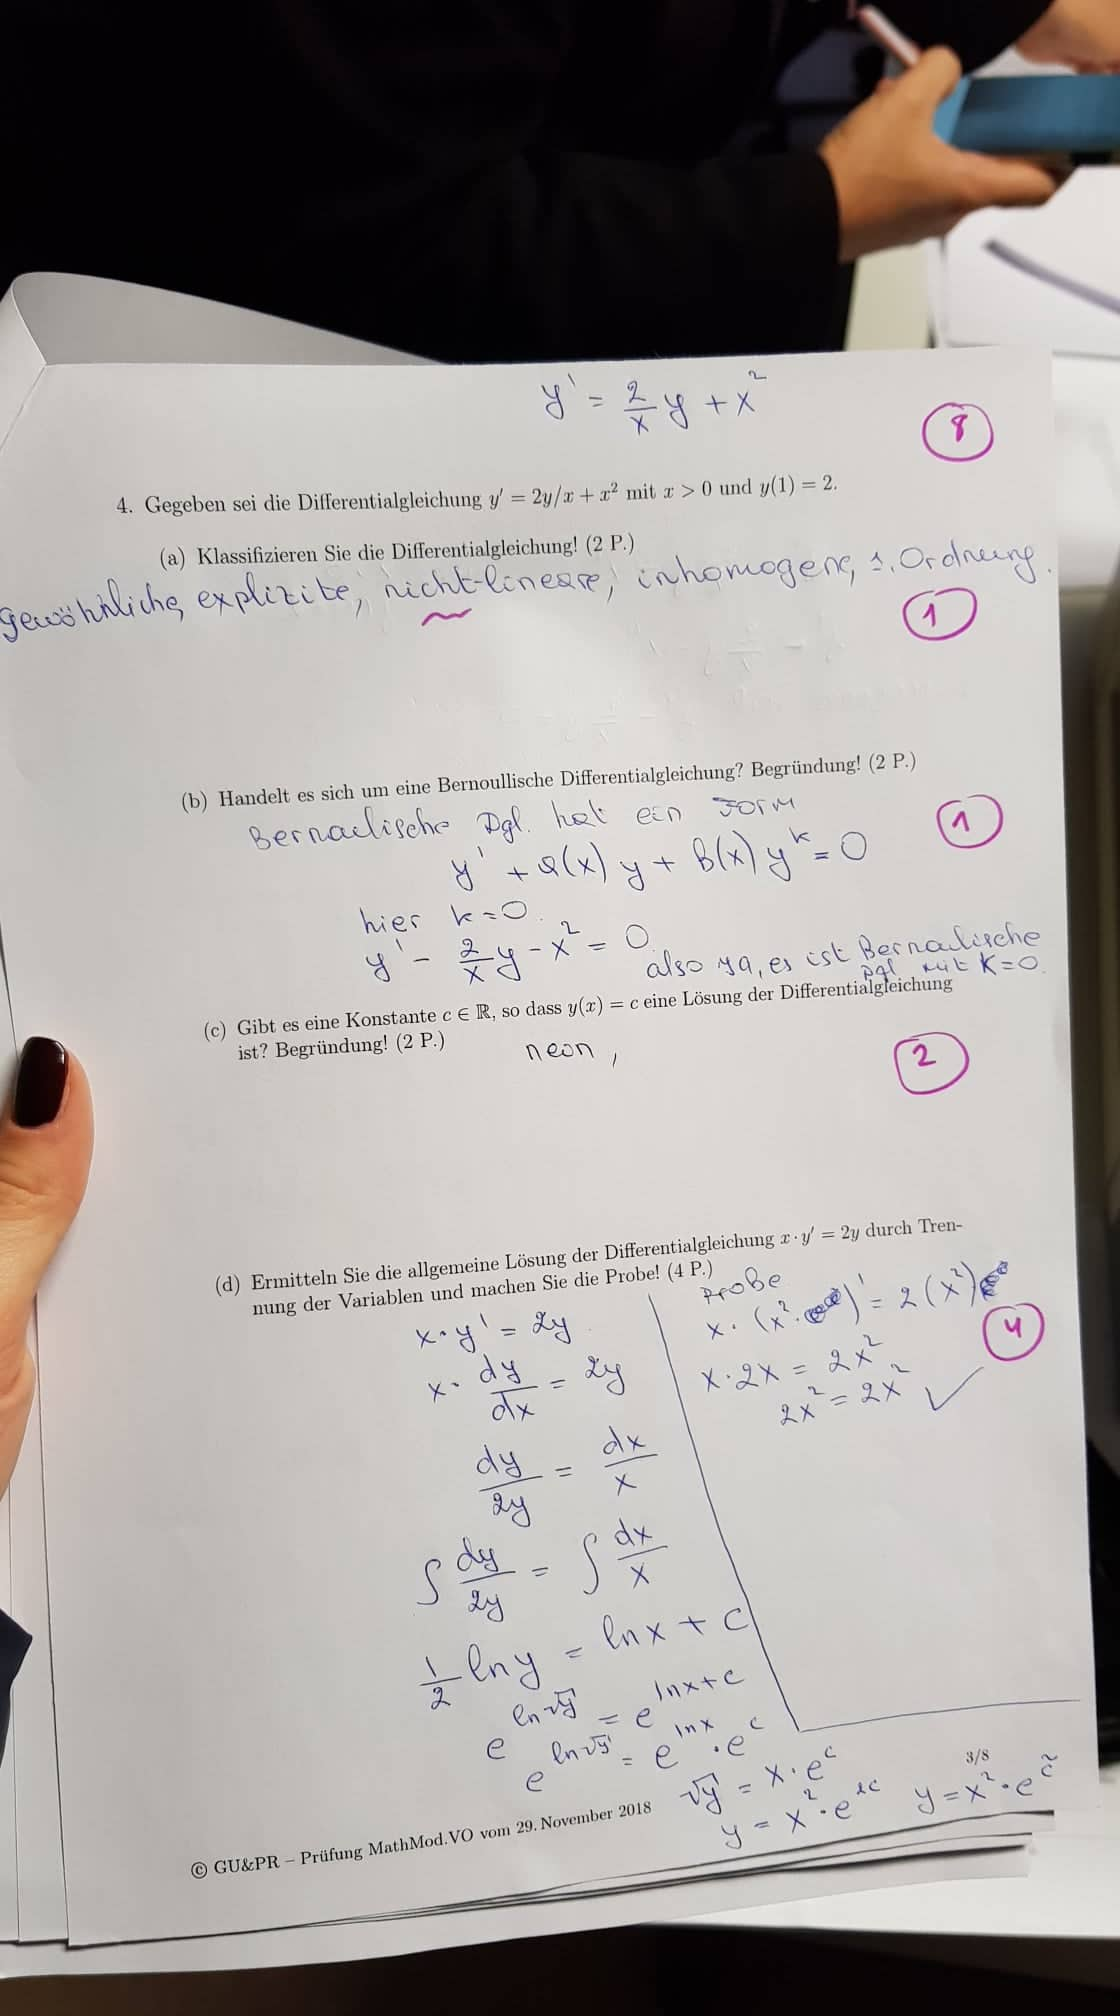 y' = 2/x y + x²
8
4. Gegeben sei die Differentialgleichung y′ = 2y/x + x² mit x > 0 und y(1) = 2.
(a) Klassifizieren Sie die Differentialgleichung! (2 P.)
gewöhnliche, explizite, nicht-lineare, inhomogene, 1. Ordnung.
1
(b) Handelt es sich um eine Bernoullische Differentialgleichung? Begründung! (2 P.)
Bernaulische Dgl. hat ein Form
1
y' + a(x) y + b(x) y^k = 0
hier k=0.
y' - 2/x y - x² = 0
also ya, es ist Bernaulische
Dgl mit K=0.
(c) Gibt es eine Konstante c ∈ ℝ, so dass y(x) = c eine Lösung der Differentialgleichung
ist? Begründung! (2 P.)
nein,
2
(d) Ermitteln Sie die allgemeine Lösung der Differentialgleichung x · y′ = 2y durch Tren-
nung der Variablen und machen Sie die Probe! (4 P.)
x · y' = 2y
x · dy/dx = 2y
dy/2y = dx/x
∫ dy/2y = ∫ dx/x
1/2 ln y = ln x + c
e^(ln √y) = e^(ln x + c)
e^(ln √y) = e^(ln x) · e^c
√y = x · e^c
y = x² · e^(2c)
y = x² · e^c̃
Probe
x · (x² · )' = 2(x²)
4
x · 2x = 2x²
2x² = 2x² ✓
3/8
© GU&PR – Prüfung MathMod.VO vom 29. November 2018